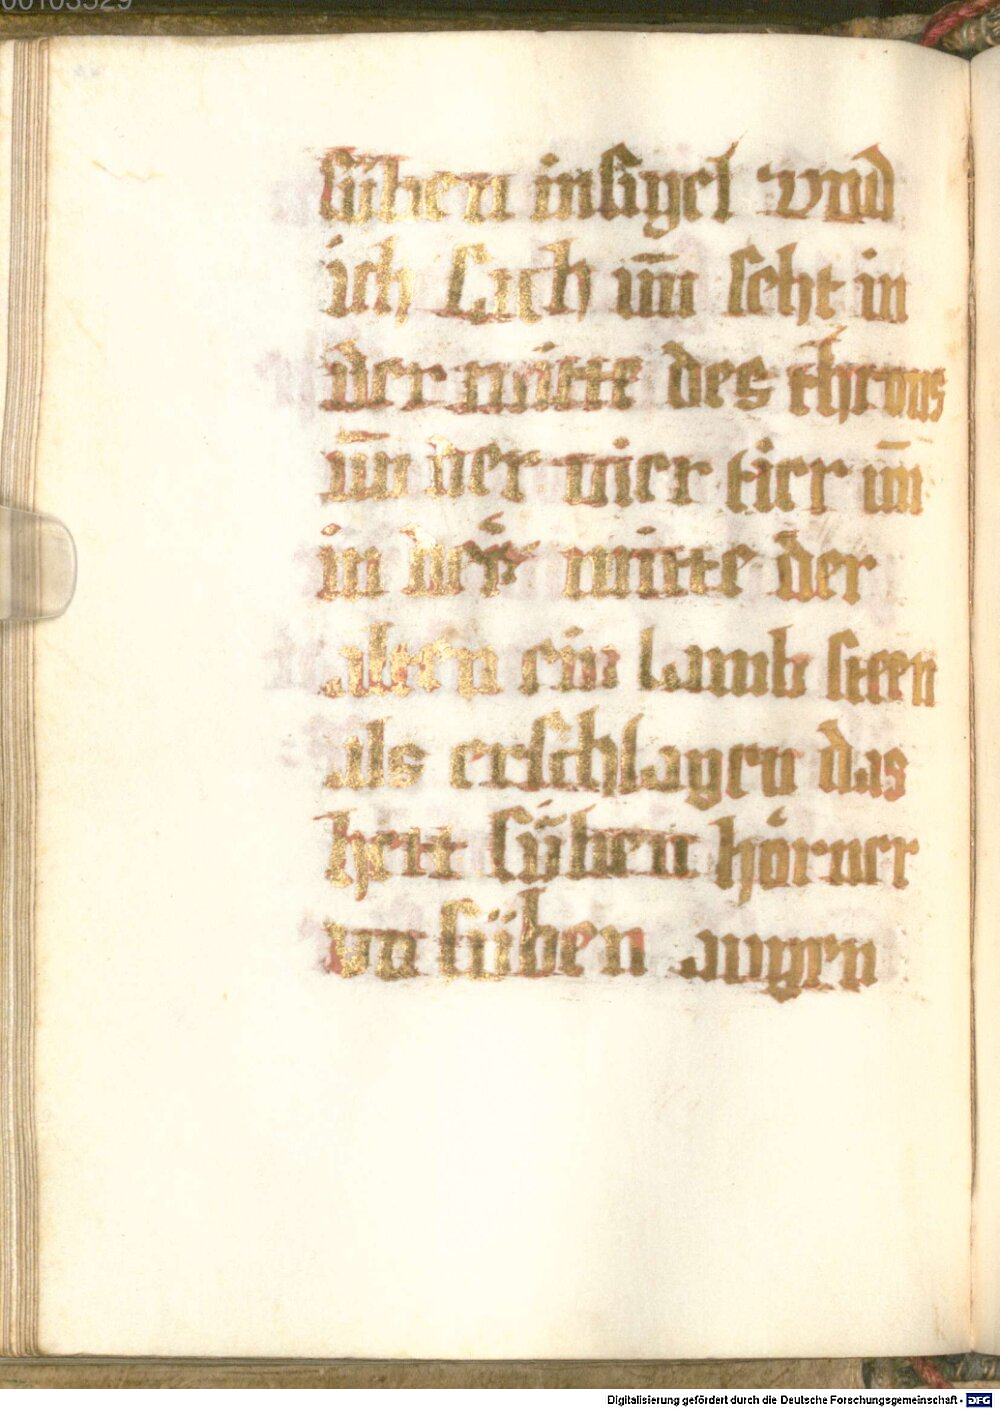 00103529
süben insigel vnd
ich Sach vn̄ seht in
der mitte des throns
vn̄ der vier tier vn̄
in der mitte der
alten ein lamb steen
als erschlagen das
hett süben hörner
vn süben augen
Digitalisierung gefördert durch die Deutsche Forschungsgemeinschaft - DFG